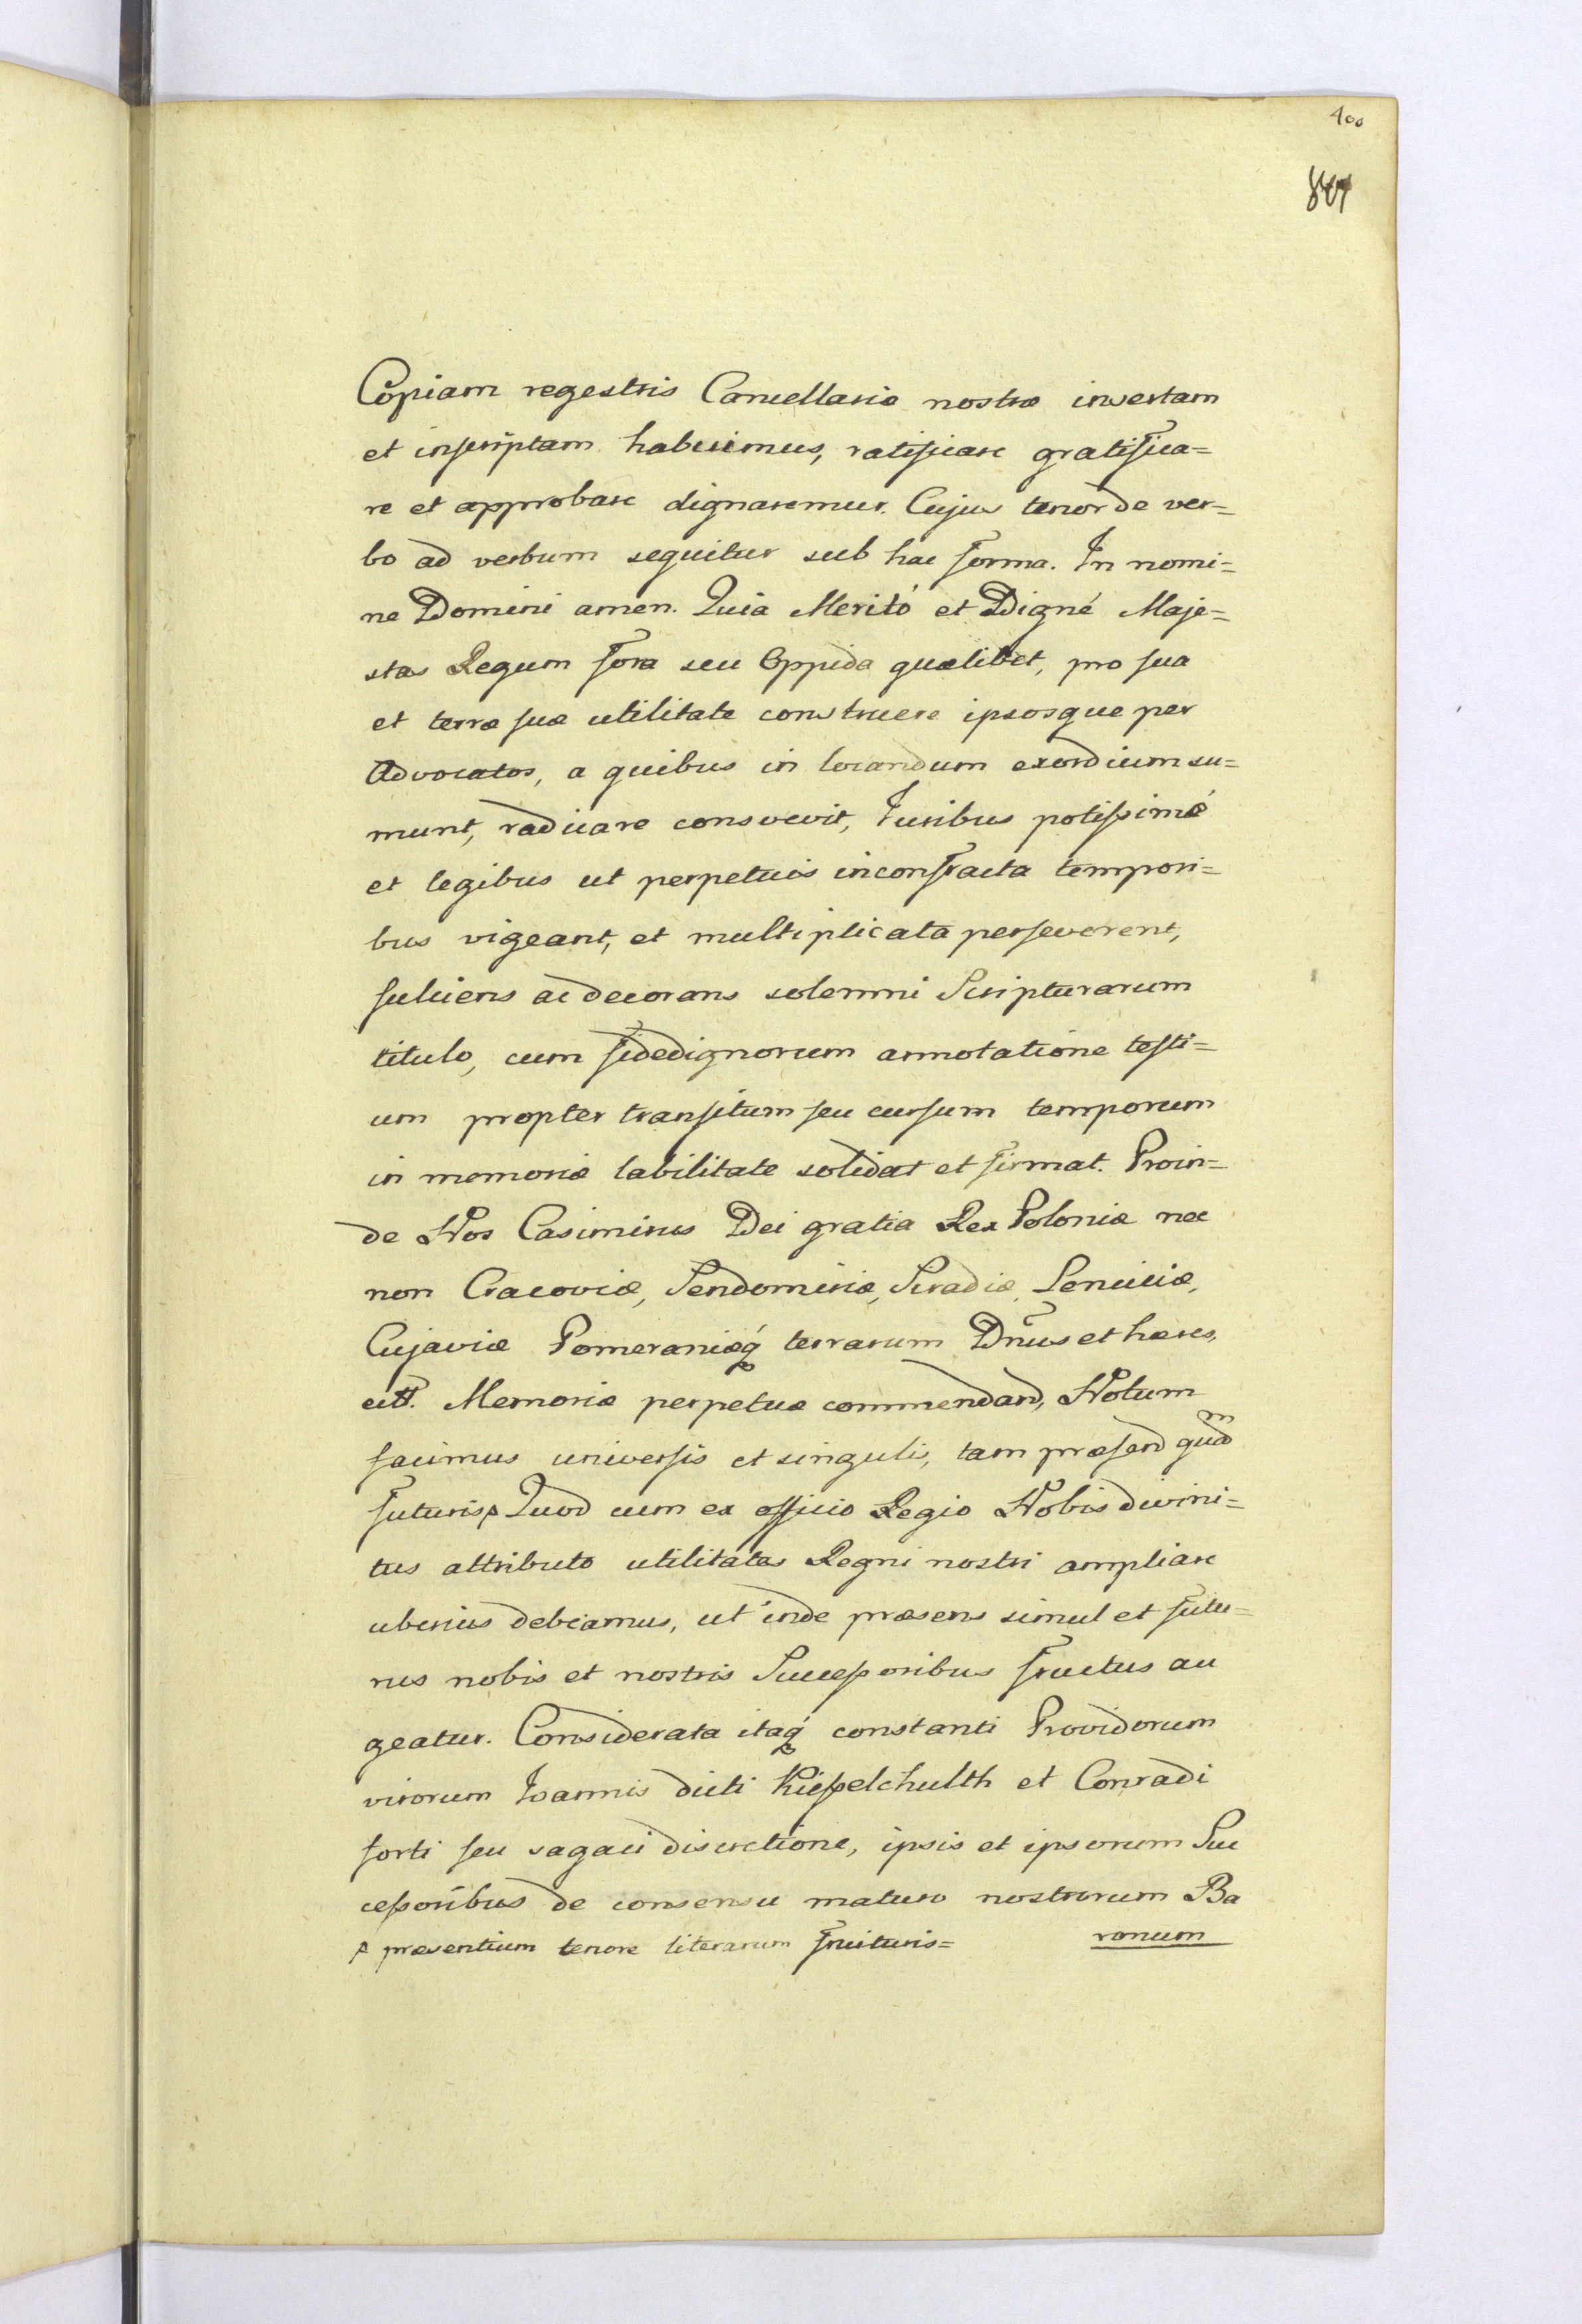 400
Copiam regestris Cancellariæ nostræ insertam
et inscriptam habuimus, ratificare gratifica=
re et approbare dignaremur. Cujus tenor de ver=
bo ad verbum sequitur sub hac forma. In nomi=
ne Domini amen. Quia Meritò et Dignè Maje=
stas Regum fora seu Oppida quælibet, pro sua
et terræ suæ utilitate construere ipsosque per
Advocatos, a quibus in locandum exordium su=
munt, radicare consvevit, Juribus potissimè
et legibus ut perpetuis inconfracta tempori=
bus vigeant, et multiplicata perseverent,
fulciens ac decorans solemni Scripturarum
titulo, cum fidedignorum annotatione testi=
um propter transitum seu cursum temporum
in memoriæ labilitate solidat et firmat. Proin=
de Nos Casimirus Dei gratia Rex Poloniæ nec
non Cracoviæ, Sendomiriæ, Siradiæ, Lenciciæ,
Cujaviæ Pomeraniæq́ terrarum Dn̄us et hæres,
ett. Memoriæ perpetuæ commendand, Notum
facimus universis et singulis, tam præsend quam
futuris Quod cum ex officio Regio Nobis divini=
tus attributo utilitates Regni nostri ampliare
uberius debeamus, ut inde præsens simul et futu=
rus nobis et nostris Successoribus fructus au
geatur. Considerata itaq́ constanti Providorum
virorum Joannis dicti Kiesselchulth et Conradi
forti seu sagaci discretione, ipsis et ipsorum Suc
cessoribus de consensu maturo nostrorum Ba
præsentium tenore literarum fruituris= ronum